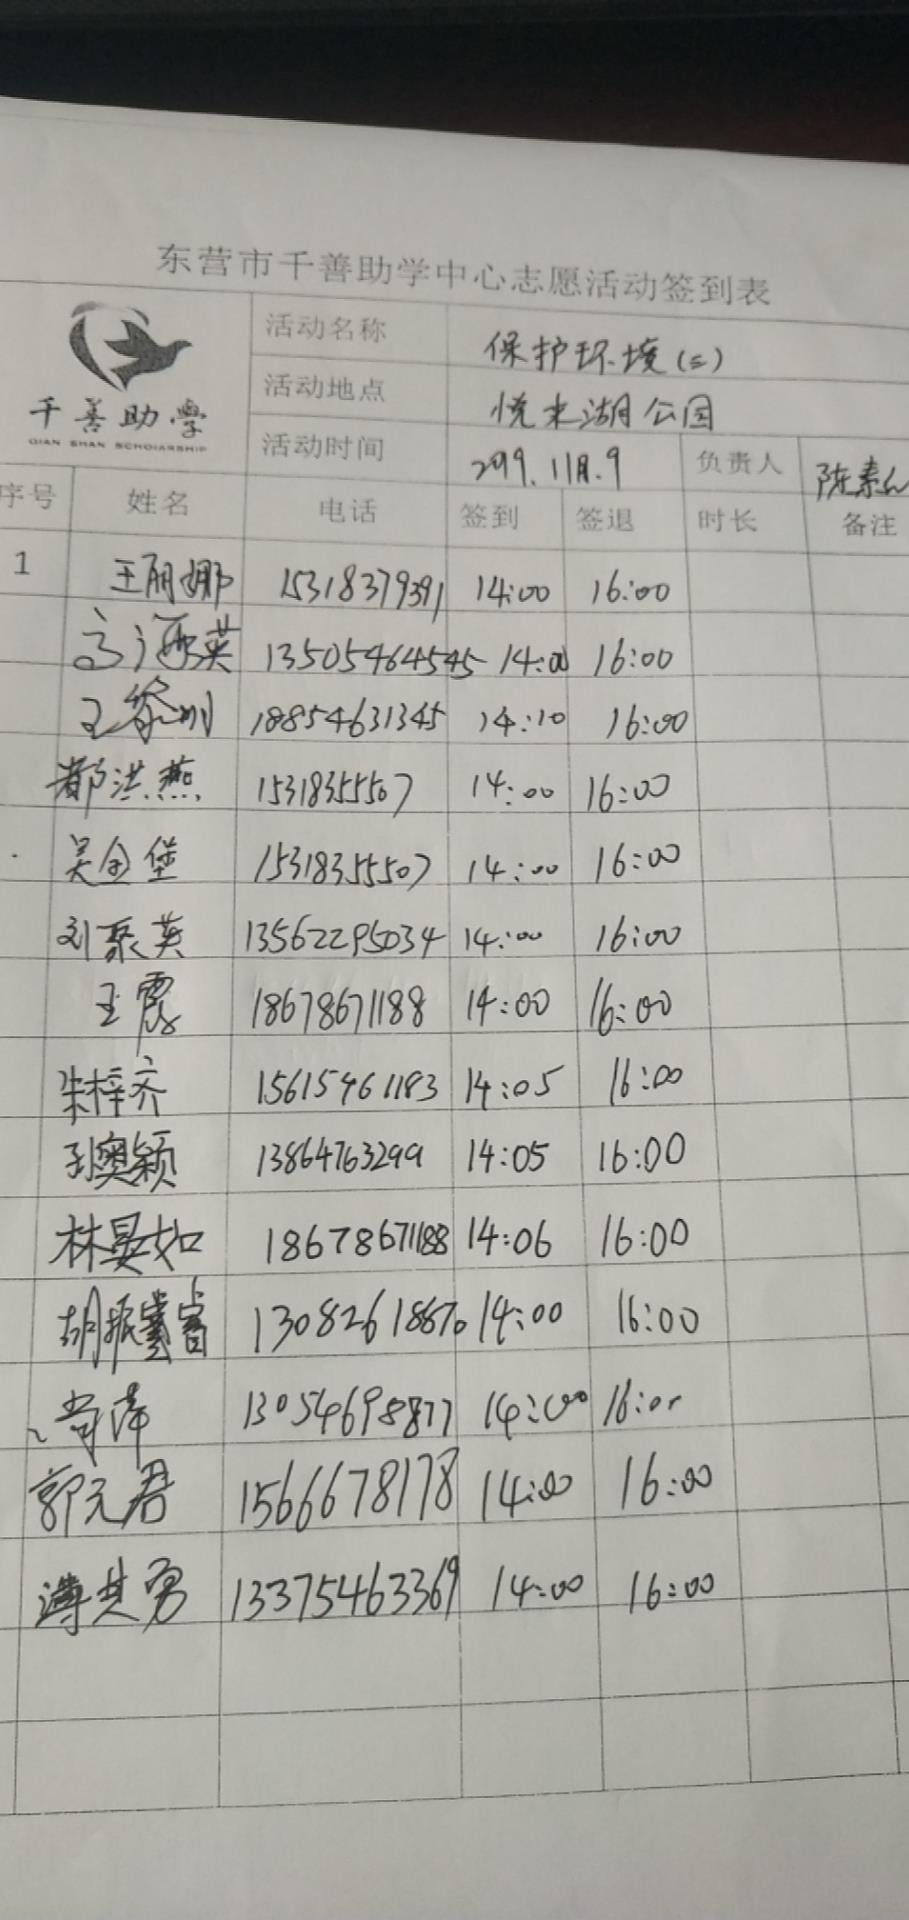 东营市千善助学中心志愿活动签到表
千善助學
QIAN SHAN SCHOIARSHIP
活动名称 保护环境(三)
活动地点 悦来湖公园
活动时间 2019.11月.9 负责人 陈素
序号 姓名 电话 签到 签退 时长 备注
1 王丽娜 15318379391 14:00 16:00
高海英 13505464545 14:00 16:00
王黎明 18854631345 14:10 16:00
鄐洪燕 15318355507 14:00 16:00
吴金堡 15318355507 14:00 16:00
刘聚英 13562295034 14:00 16:00
王霞 18678671188 14:00 16:00
朱梓齐 15615461183 14:05 16:00
孙奥颖 13864763299 14:05 16:00
林晏如 18678671188 14:06 16:00
胡振睿 13082618670 14:00 16:00
肖萍 13054698877 14:00 16:00
郭元君 1566678178 14:00 16:00
薄其勇 13375463369 14:00 16:00